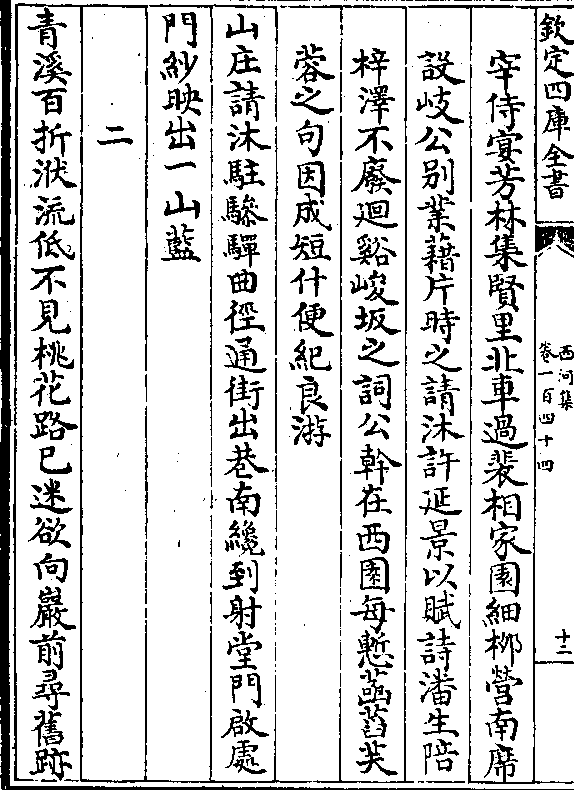 欽定四庫全書
西河集
卷一百四十四
十二
宰侍宴芳林集賢里北車過裴相家園細柳營南席
設岐公别業藉片時之請沐許延景以賦詩潘生陪
梓澤不廢迴谿峻坂之詞公幹在西園每慙菡萏芙
蓉之句因成短什便紀良游
山庄請沐駐驂驔曲徑通街出巷南纔到射堂門啟處
門紗映出一山藍
二
青溪百折洑流低不見桃花路已迷欲向巖前尋舊跡